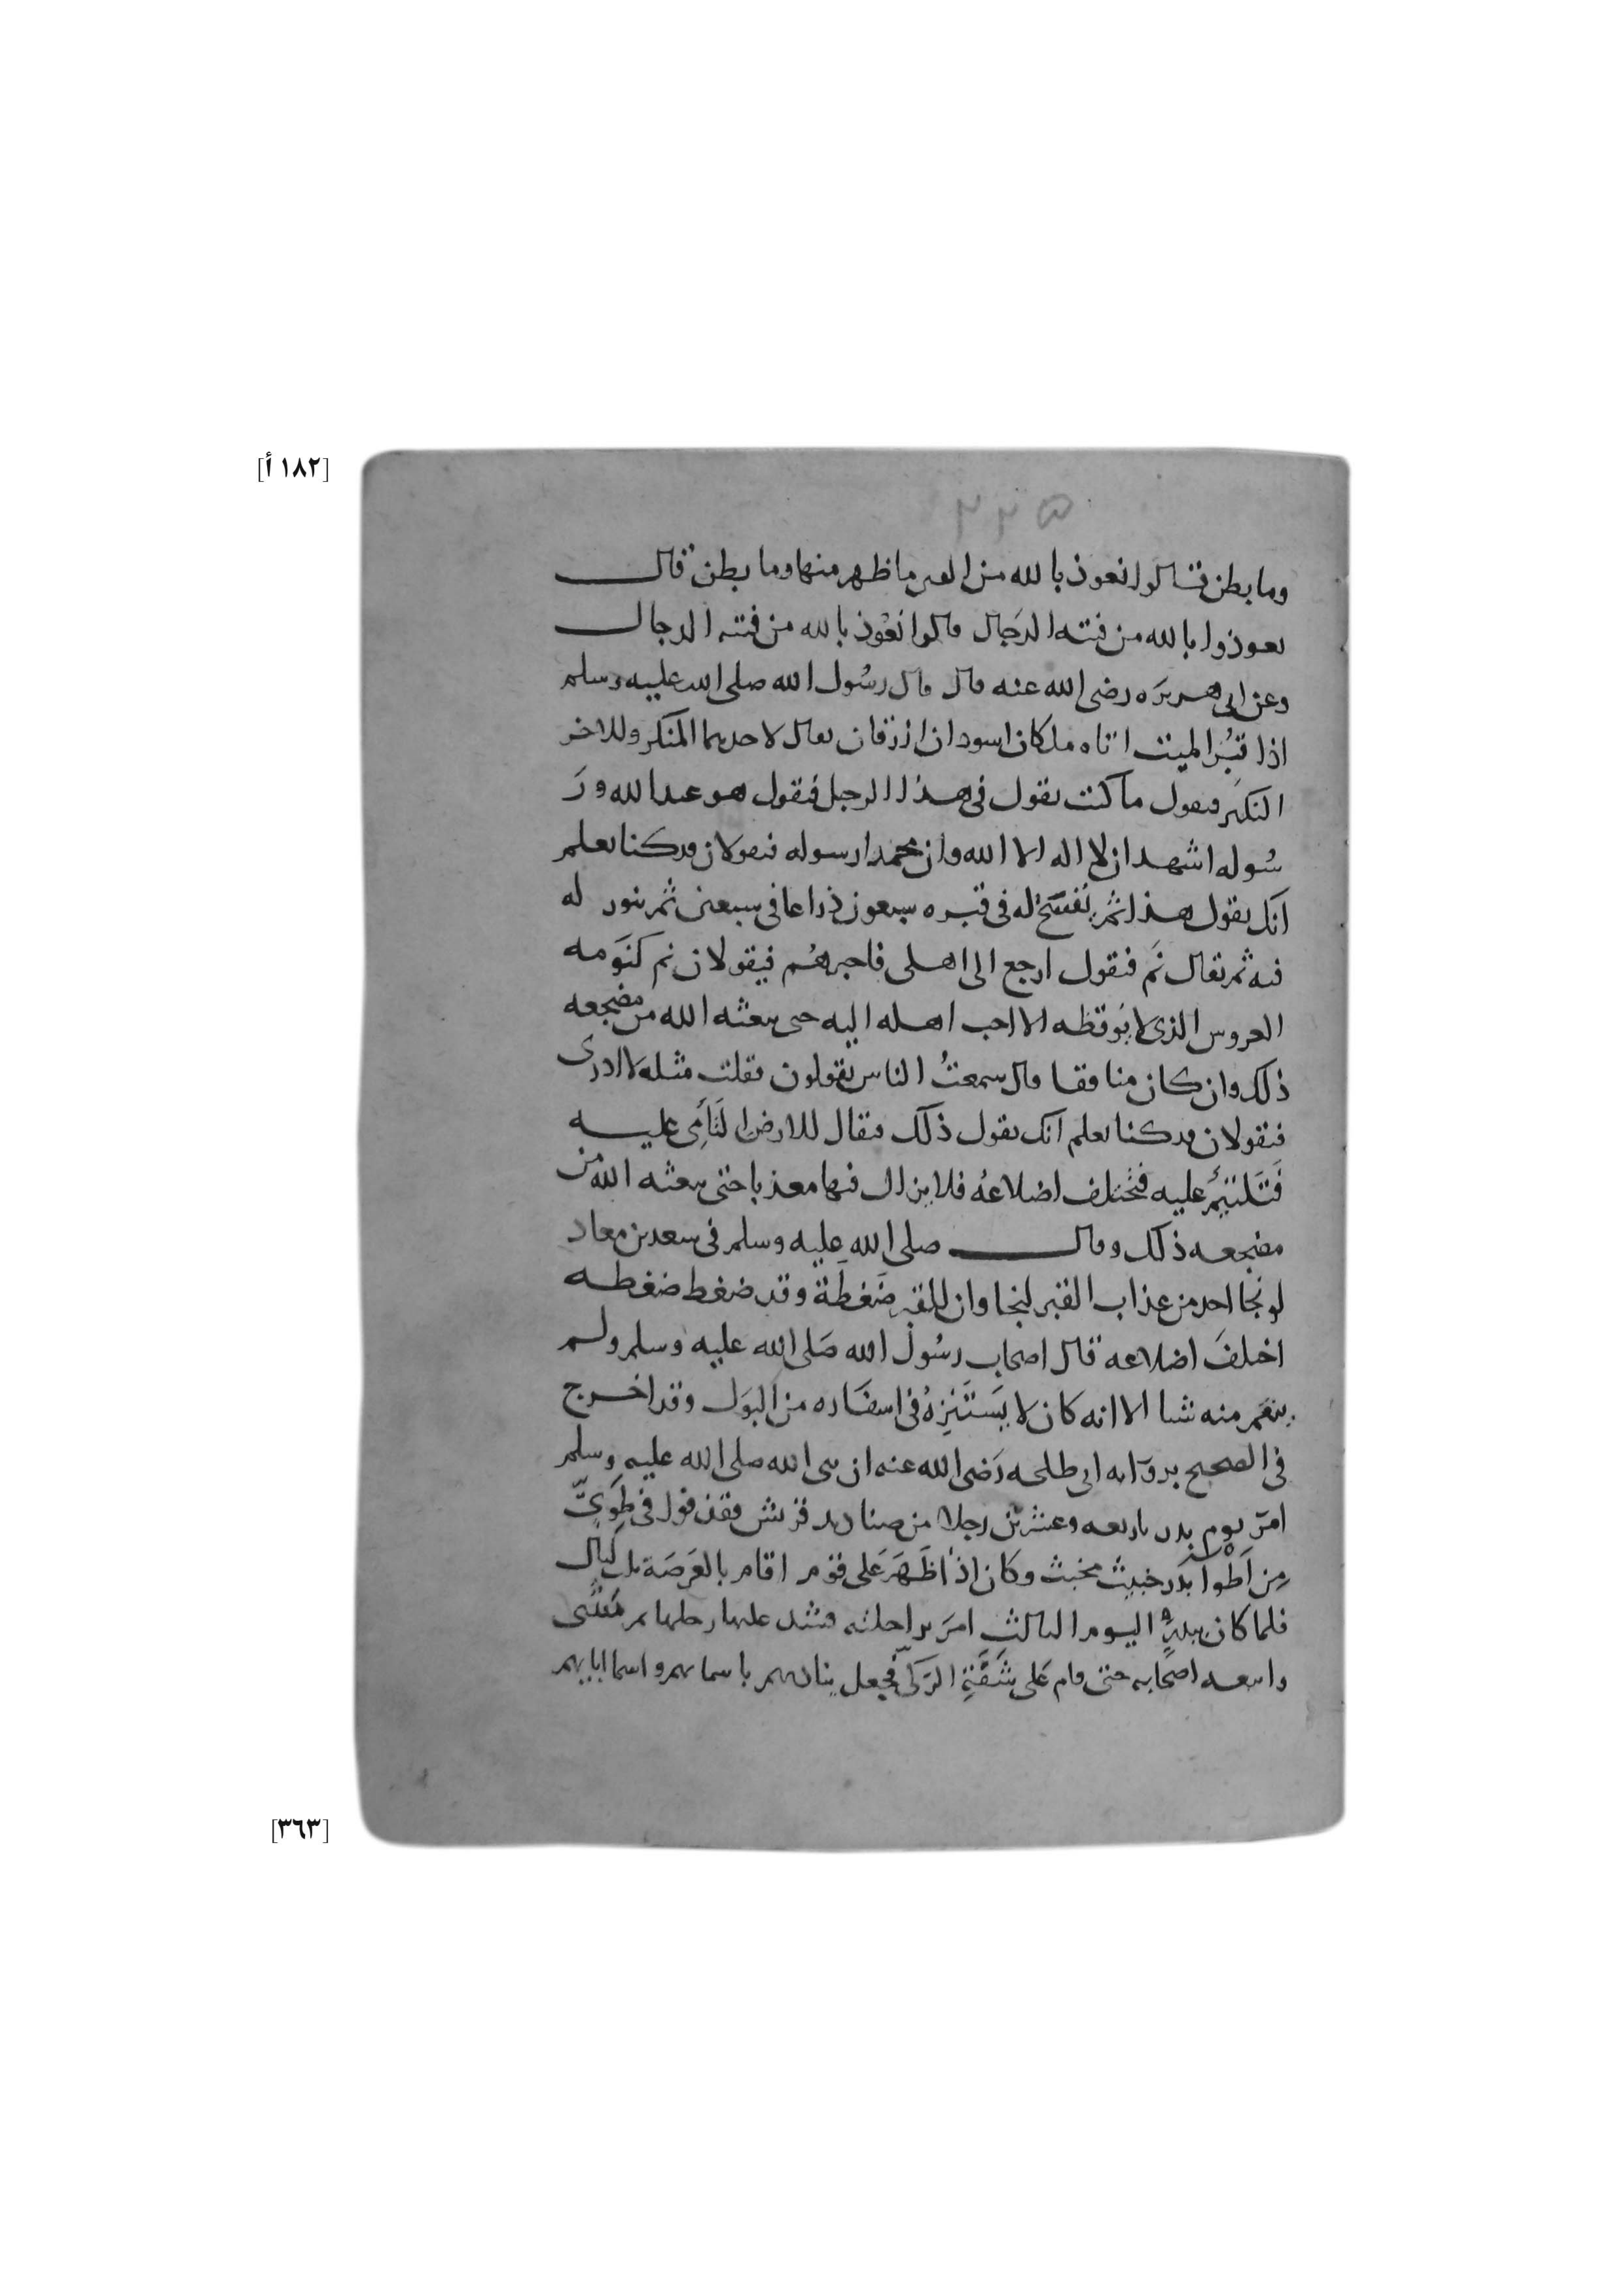 [١٨٢ أ]
٣٣٥
وما بطن قالوا نعوذ بالله من الفتن ما ظهر منها وما بطن قال
تعوذوا بالله من فتنه الدجال قالوا نعوذ بالله من فتنه الدجال
وعن ابي هريره رضى الله عنه قال قال رسول الله صلى الله عليه وسلم
اذا قبر الميت اتاه ملكان اسودان ازرقان يقال لاحدهما المنكر وللاخر
النكير فيقول ما كنت تقول في هذا الرجل فيقول هو عبد الله ور
سوله اشهد ان لا اله الا الله وان محمدا رسوله فيقولان قد كنا نعلم
انك تقول هذا ثم يفسح له في قبره سبعون ذراعا في سبعين ثم ينور له
فيه ثم يقال نم فيقول ارجع الى اهلى فاخبرهم فيقولان نم كنومه
العروس الذى لا يوقظه الا احب اهله اليه حتى يبعثه الله من مضجعه
ذلك وان كان منافقا قال سمعت الناس يقولون فقلت مثله لا ادرى
فيقولان قد كنا نعلم انك تقول ذلك فيقال للارض التامى عليه
فتلتئم عليه فتختلف اضلاعه فلا يزال فيها معذبا حتى يبعثه الله من
مضجعه ذلك وقال صلى الله عليه وسلم في سعد بن معاد
لو نجا احد من عذاب القبر لنجا وان للقبر ضغطة وقد ضغط ضغطه
اختلف اضلاعه قال اصحاب رسول الله صلى الله عليه وسلم ولم
ينقم منه شيا الا انه كان لا يستنزه في اسفاره من البول وقد اخرج
في الصحيح بروايه ابي طلحه رضى الله عنه ان نبى الله صلى الله عليه وسلم
امر يوم بدر باربعه وعشرين رجلا من صناديد قريش فقذفوا في طوي
من اطوا بدر خبيث مخبث وكان اذا ظهر على قوم اقام بالعرصة ثلث ليال
فلما كان ببدر اليوم الثالث امر براحلته فشد عليها رحلها ثم مشى
واتبعه اصحابه حتى قام على شفة الركي فجعل يناديهم باسمايهم واسما ابايهم
[٣٦٣]